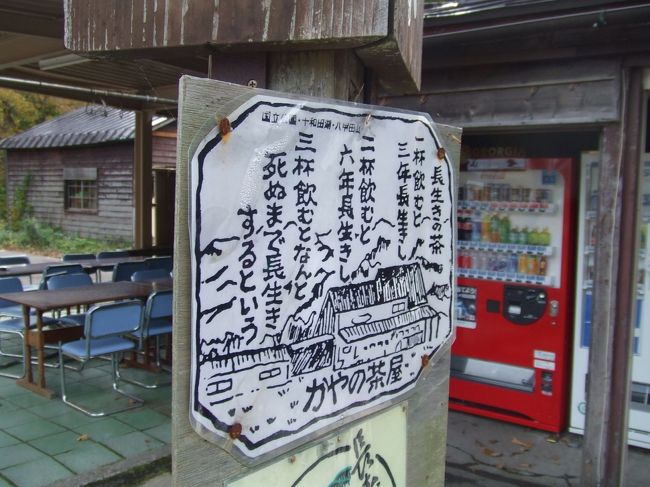 国立公園・十和田湖・八甲田山
長生きの茶
一杯飲むと
三年長生きし
二杯飲むと
六年長生きし
三杯飲むとなんと
死ぬまで長生き
するという
かやの茶屋
GEORGIA